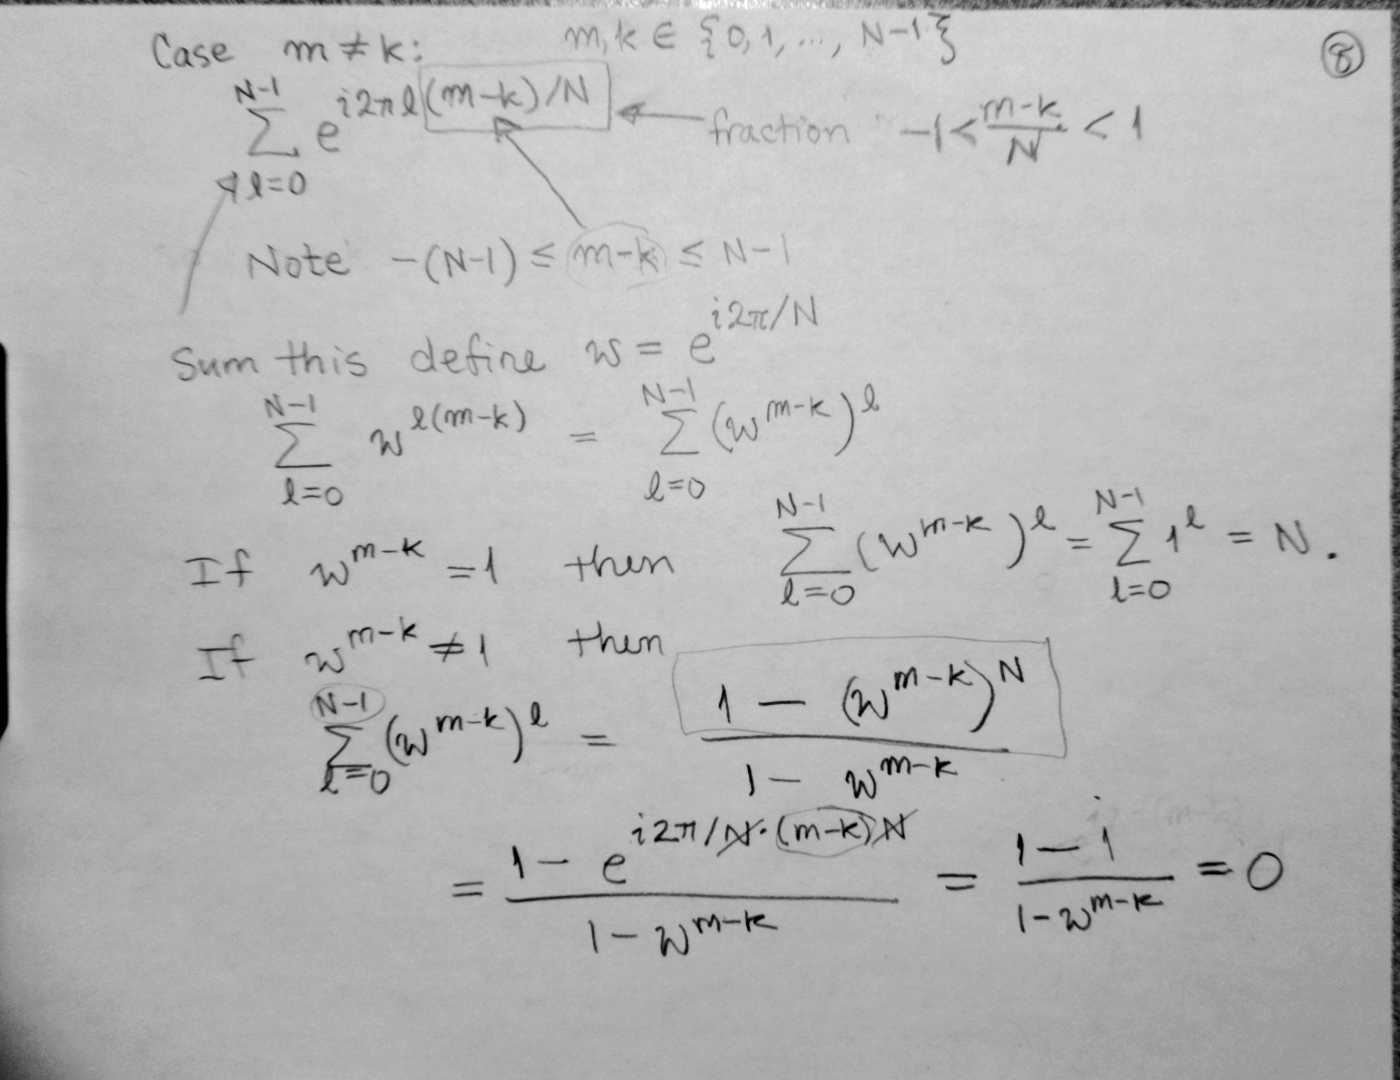 Case m ≠ k: m, k ∈ {0, 1, ..., N-1} ⑧
\sum_{l=0}^{N-1} e^{i2πl(m-k)/N} ← fraction -1 < \frac{m-k}{N} < 1
Note -(N-1) ≤ m-k ≤ N-1
Sum this define w = e^{i2π/N}
\sum_{l=0}^{N-1} w^{l(m-k)} = \sum_{l=0}^{N-1} (w^{m-k})^l
If w^{m-k} = 1 then \sum_{l=0}^{N-1} (w^{m-k})^l = \sum_{l=0}^{N-1} 1^l = N.
If w^{m-k} ≠ 1 then
\sum_{l=0}^{N-1} (w^{m-k})^l = \frac{1 - (w^{m-k})^N}{1 - w^{m-k}}
= \frac{1 - e^{i2π/N·(m-k)N}}{1 - w^{m-k}} = \frac{1-1}{1-w^{m-k}} = 0